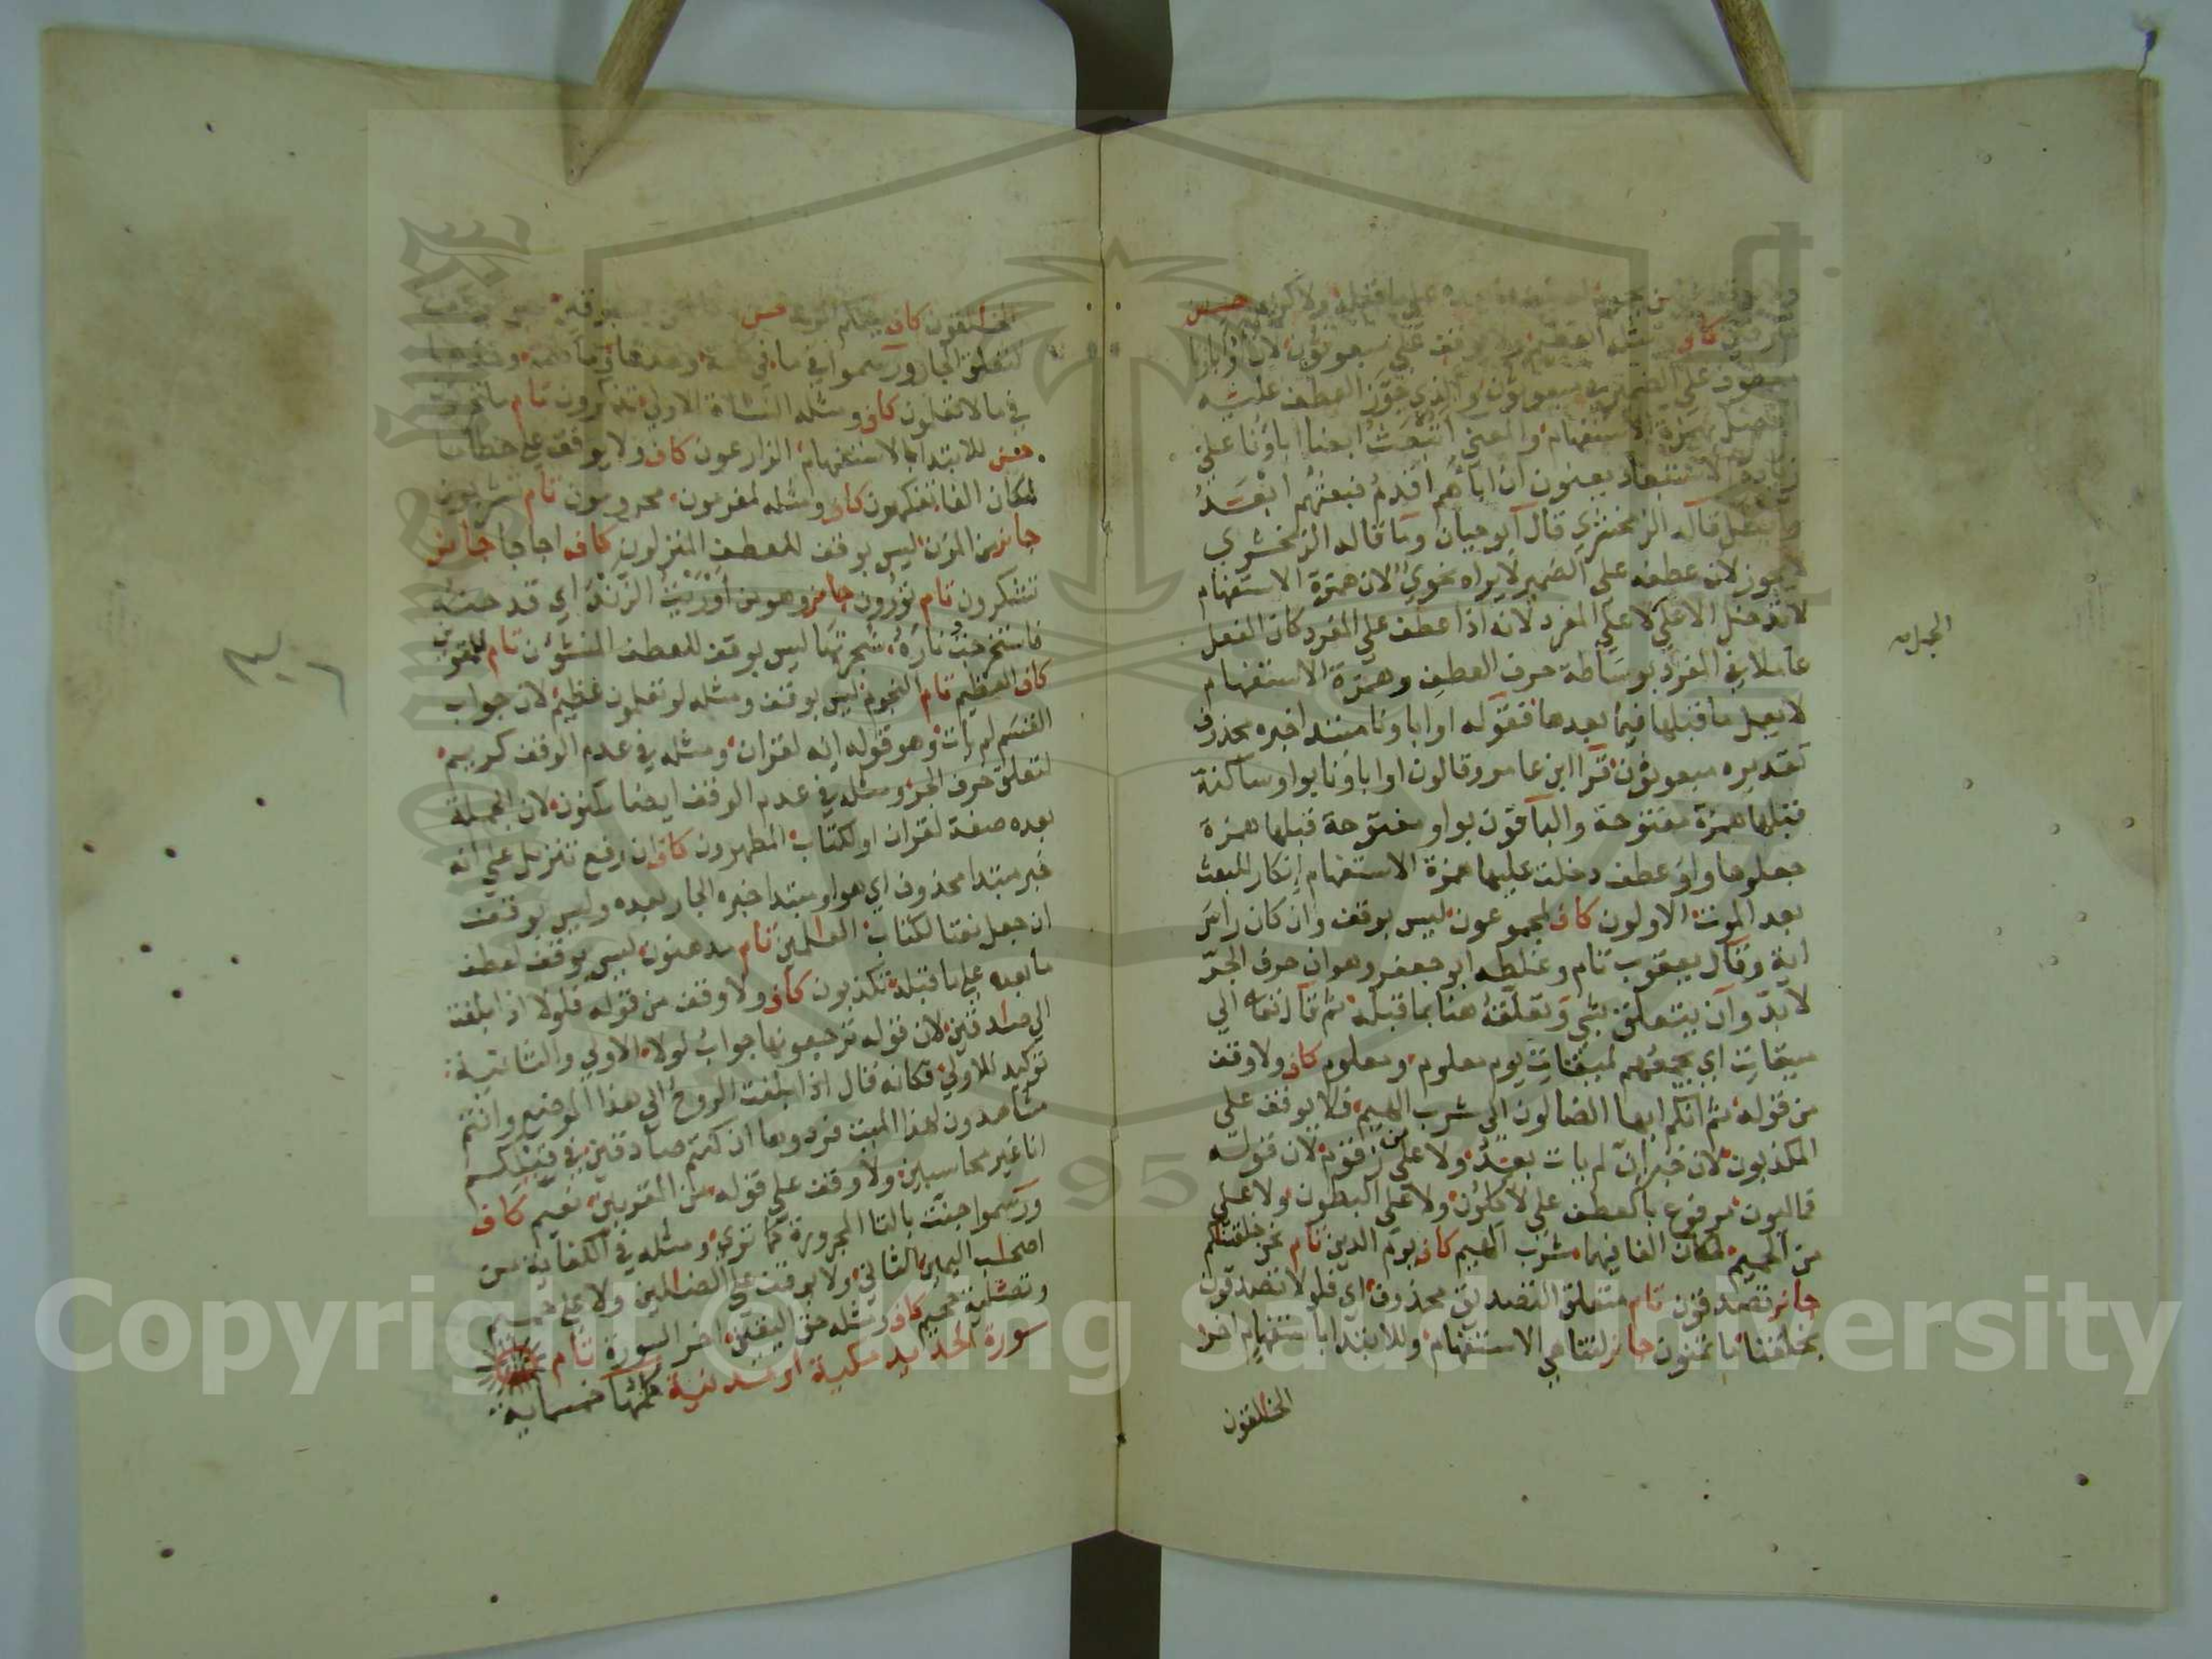 مترفين كاف ومثله العظيم ولا يوقف على مبعوثون لان او اباونا
معطوف على الضمير في مبعوثون والذي جوز العطف عليه
الفصل بهمزة الاستفهام والمعنى اتبعث ايضا اباؤنا على
زيادة الاستبعاد يعنون ان اباءهم اقدم فبعثهم ابعد
وابطل قاله الزمخشري قال ابو حيان وما قاله الزمخشري
لا يجوز لان عطفه على الضمير لا يراه نحوي لان همزة الاستفهام
لا تدخل الا على لا على المفرد لانه اذا عطف على المفرد كان الفعل
الجمل
عاملا في المفرد بوساطة حرف العطف وهمزة الاستفهام
لا يعمل ما قبلها فيما بعدها فقوله او اباونا مبتدا خبره محذوف
تقديره مبعوثون قرا ابن عامر وقالون او اباونا بواو ساكنة
قبلها همزة مفتوحة والباقون بواو مفتوحة قبلها همزة
جعلوها واو عطف دخلت عليها همزة الاستفهام انكار للبعث
بعد الموت الاولون كاف لمجموعون ليس بوقف وان كان راس
اية وقال يعقوب تام وغلطه ابو جعفر وهو ان حرف الجر
لا بد وان يتعلق بشي وتعلقه هنا بما قبله ثم قال تعالى الي
ميقات اي يجمعهم لميقات يوم معلوم ومعلوم كاف ولا وقف
من قوله ثم انكم ايها الضالون الى شرب الهيم فلا يوقف على
المكذبون لان خبر ان لم يات بعد ولا على من زقوم لان قوله
فماليون مرفوع بالعطف على لاكلون ولا على البطون ولا على
من الحميم لمكان الفا فيهما شرب الهيم كاف يوم الدين تام نحن خلقناكم
جائز تصدقون تام متعلق التصديق محذوف اي فلولا تصدقون
بخلقنا ما تمنون جائز لتناهي الاستفهام وللابتدا باستفهام اخر
الخالقون
الخالقون كاف بينكم الموت حسن
لتعلق الجار ورسموا في ما في كلمة وحدها وما كلمة وحدها
في ما لا تعلمون كاف ومثله النشاة الاولى تذكرون تام ما تحرثون
حسن للابتدا بالاستفهام الزارعون كاف ولا يوقف على حطاما
لمكان الفا تفكهون كاف ومثله لمغرمون محرومون تام تشربون
جائز من المزن ليس بوقف للعطف المنزلون كاف اجاجا جائز
تشكرون تام تورون جائز وهو من اوريت الزند اي قدحته
فاستخرجت ناره شجرتها ليس بوقف للعطف المنشئون تام للمقوين
كاف العظيم تام النجوم ليس بوقف ومثله لو تعلمون عظيم لان جواب
القسم لم يات وهو قوله انه لقران ومثله في عدم الوقف كريم
لتعلق حرف الجر ومثله في عدم الوقف ايضا مكنون لان الجملة
بعده صفة لقران او لكتاب المطهرون كاف ان رفع تنزيل على انه
خبر مبتدا محذوف اي هو او مبتدا خبره الجار بعده وليس بوقف
ان جعل نعتا لكتاب العالمين تام مدهنون ليس بوقف لعطف
ما بعده على ما قبله تكذبون كاف ولا وقف من قوله فلولا اذا بلغت
الى صادقين لان قوله ترجعونها جواب لولا الاولى والثانية
توكيد للاولى فكانه قال اذا بلغت الروح الى هذا الموضع وانتم
مشاهدون لهذا الميت فردوها ان كنتم صادقين في قيلكم
انا غير محاسبين ولا وقف على قوله من المقربين نعيم كاف
ورسموا جنت بالتا المجرورة كما ترى ومثله في الكفاية من
اصحاب اليمين الثاني ولا يوقف على الضالين ولا على حميم
وتصلية جحيم كاف ومثله حق اليقين اخر السورة تام
سورة الحديد مكية او مدنية كلمها خمسماية